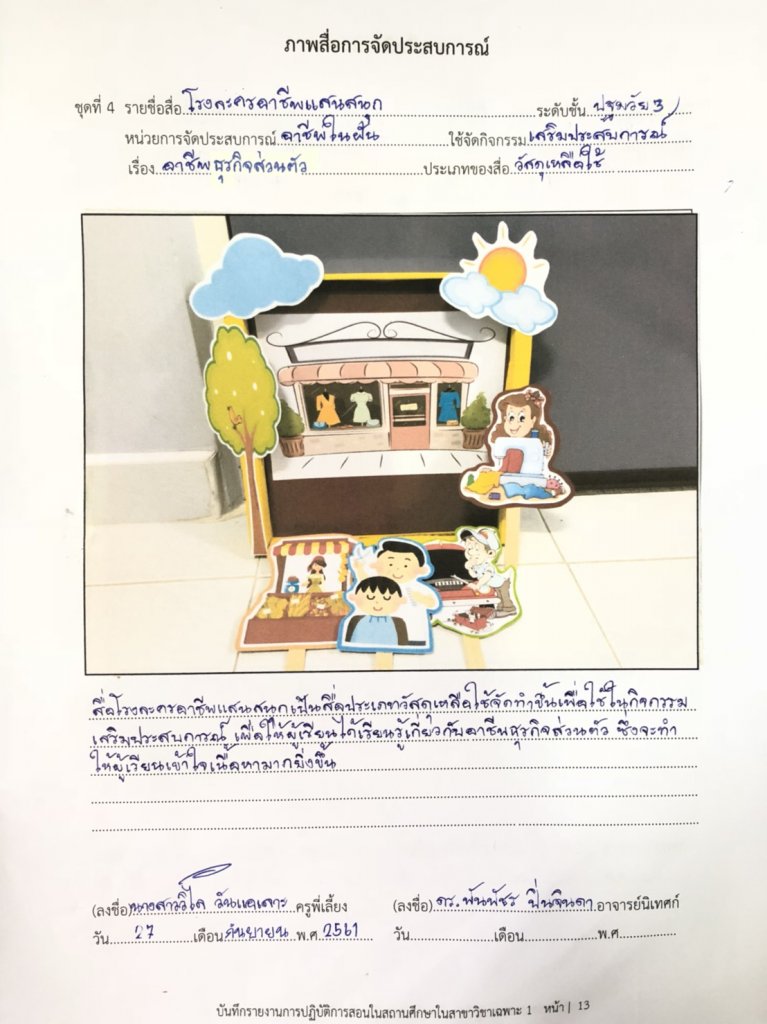 ภาพสื่อการจัดประสบการณ์
ชุดที่ 4 รายชื่อสื่อ โรงละครอาชีพแสนสนุก ระดับชั้น ปฐมวัย 3
หน่วยการจัดประสบการณ์ อาชีพในฝัน ใช้จัดกิจกรรม เสริมประสบการณ์
เรื่อง อาชีพธุรกิจส่วนตัว ประเภทของสื่อ วัสดุเหลือใช้
สื่อโรงละครอาชีพแสนสนุกเป็นสื่อประเภทวัสดุเหลือใช้จัดทำขึ้นเพื่อใช้ในกิจกรรม
เสริมประสบการณ์ เพื่อให้ผู้เรียนได้เรียนรู้เกี่ยวกับอาชีพธุรกิจส่วนตัว ซึ่งจะทำ
ให้ผู้เรียนเข้าใจเนื้อหามากยิ่งขึ้น
(ลงชื่อ) นางสาววิไล วันแอเลาะ ครูพี่เลี้ยง (ลงชื่อ) ดร.พันพัชร ปิ่นจินดา อาจารย์นิเทศก์
วัน 27 เดือน กันยายน พ.ศ. 2561 วัน เดือน พ.ศ.
บันทึกรายงานการปฏิบัติการสอนในสถานศึกษาในสาขาวิชาเฉพาะ 1 หน้า | 13